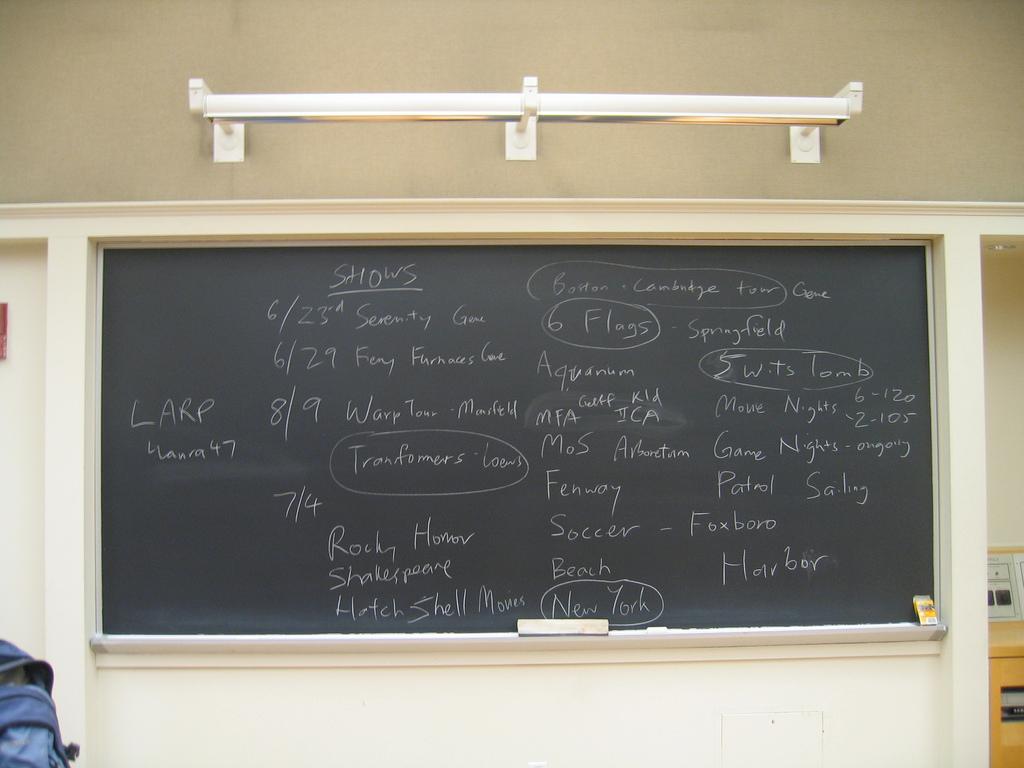 SHOWS
6/23rd Serenity Gene
6/29 Fiery Furnaces Gene
8/9 Warp Tour - Mansfield
LARP
Tranformers - Loews
7/4
Rocky Horror
Shakespeare
Hatch Shell Movies
Boston - Cambridge tour Gene
6 Flags - Springfield
Aquarium
5 wits Tomb
MFA ICA
Movie Nights 6-120
-2-105
MoS Arboretum
Game Nights - ongoing
Fenway
Patrol Sailing
Soccer - Foxboro
Beach
Harbor
New York